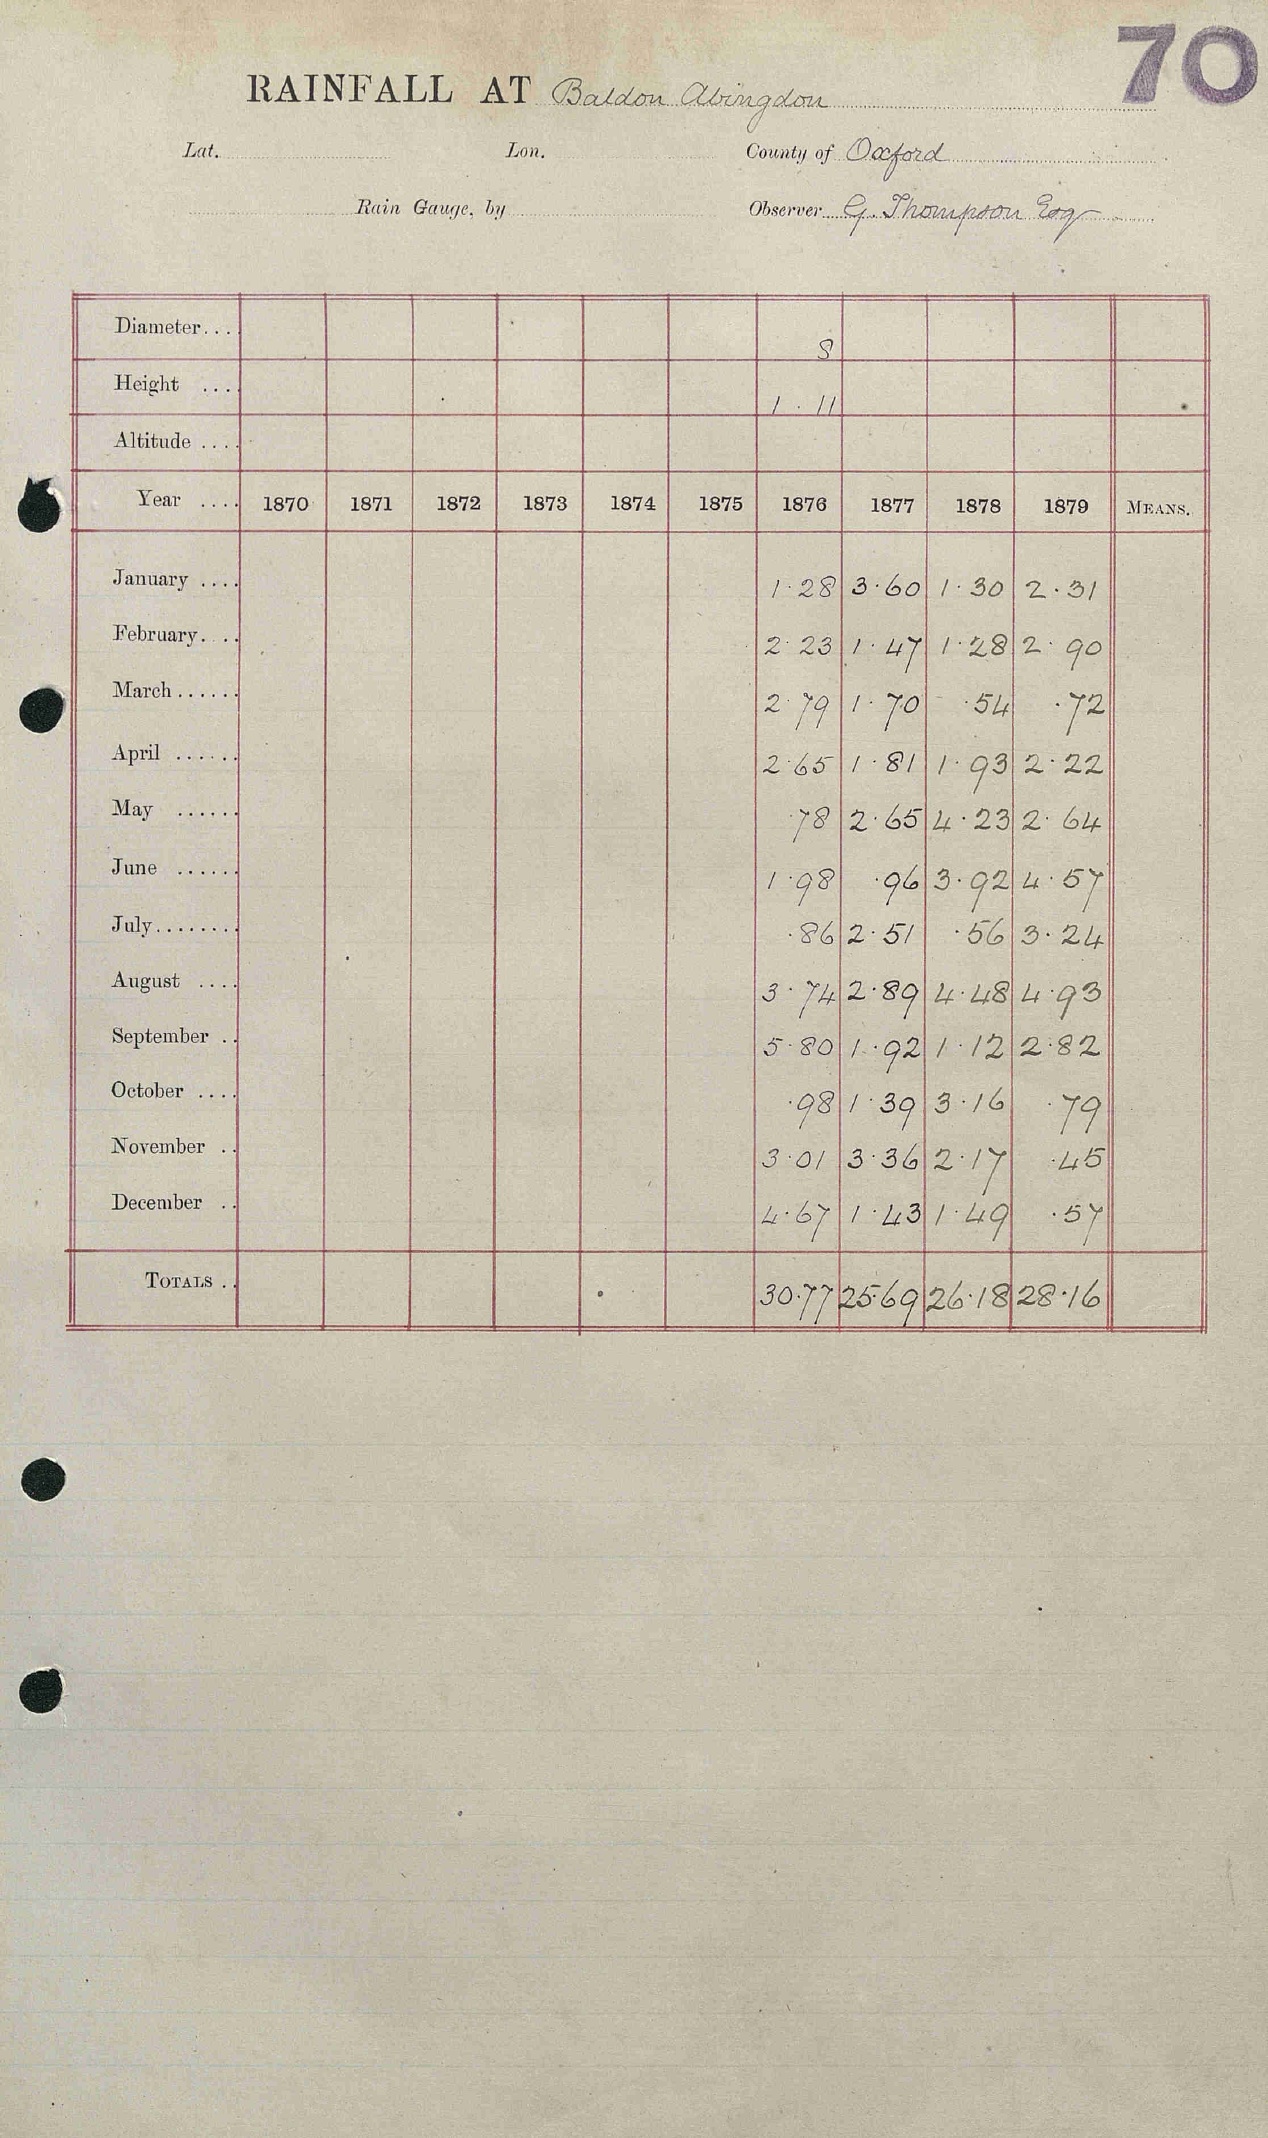 70
RAINFALL AT Baldon Abingdon
Lat. Lon. County of Oxford
Rain Gauge, by Observer G. Thompson Esq
Diameter.... 8
Height .... 1 · 11
Altitude ....
Year .... 1870 1871 1872 1873 1874 1875 1876 1877 1878 1879 MEANS.
January .... 1·28 3·60 1·30 2·31
February.... 2·23 1·47 1·28 2·90
March...... 2·79 1·70 ·54 ·72
April ...... 2·65 1·81 1·93 2·22
May ...... ·78 2·65 4·23 2·64
June ...... 1·98 ·96 3·92 4·57
July........ ·86 2·51 ·56 3·24
August .... 3·74 2·89 4·48 4·93
September .. 5·80 1·92 1·12 2·82
October .... ·98 1·39 3·16 ·79
November .. 3·01 3·36 2·17 ·45
December .. 4·67 1·43 1·49 ·57
TOTALS .. 30·77 25·69 26·18 28·16